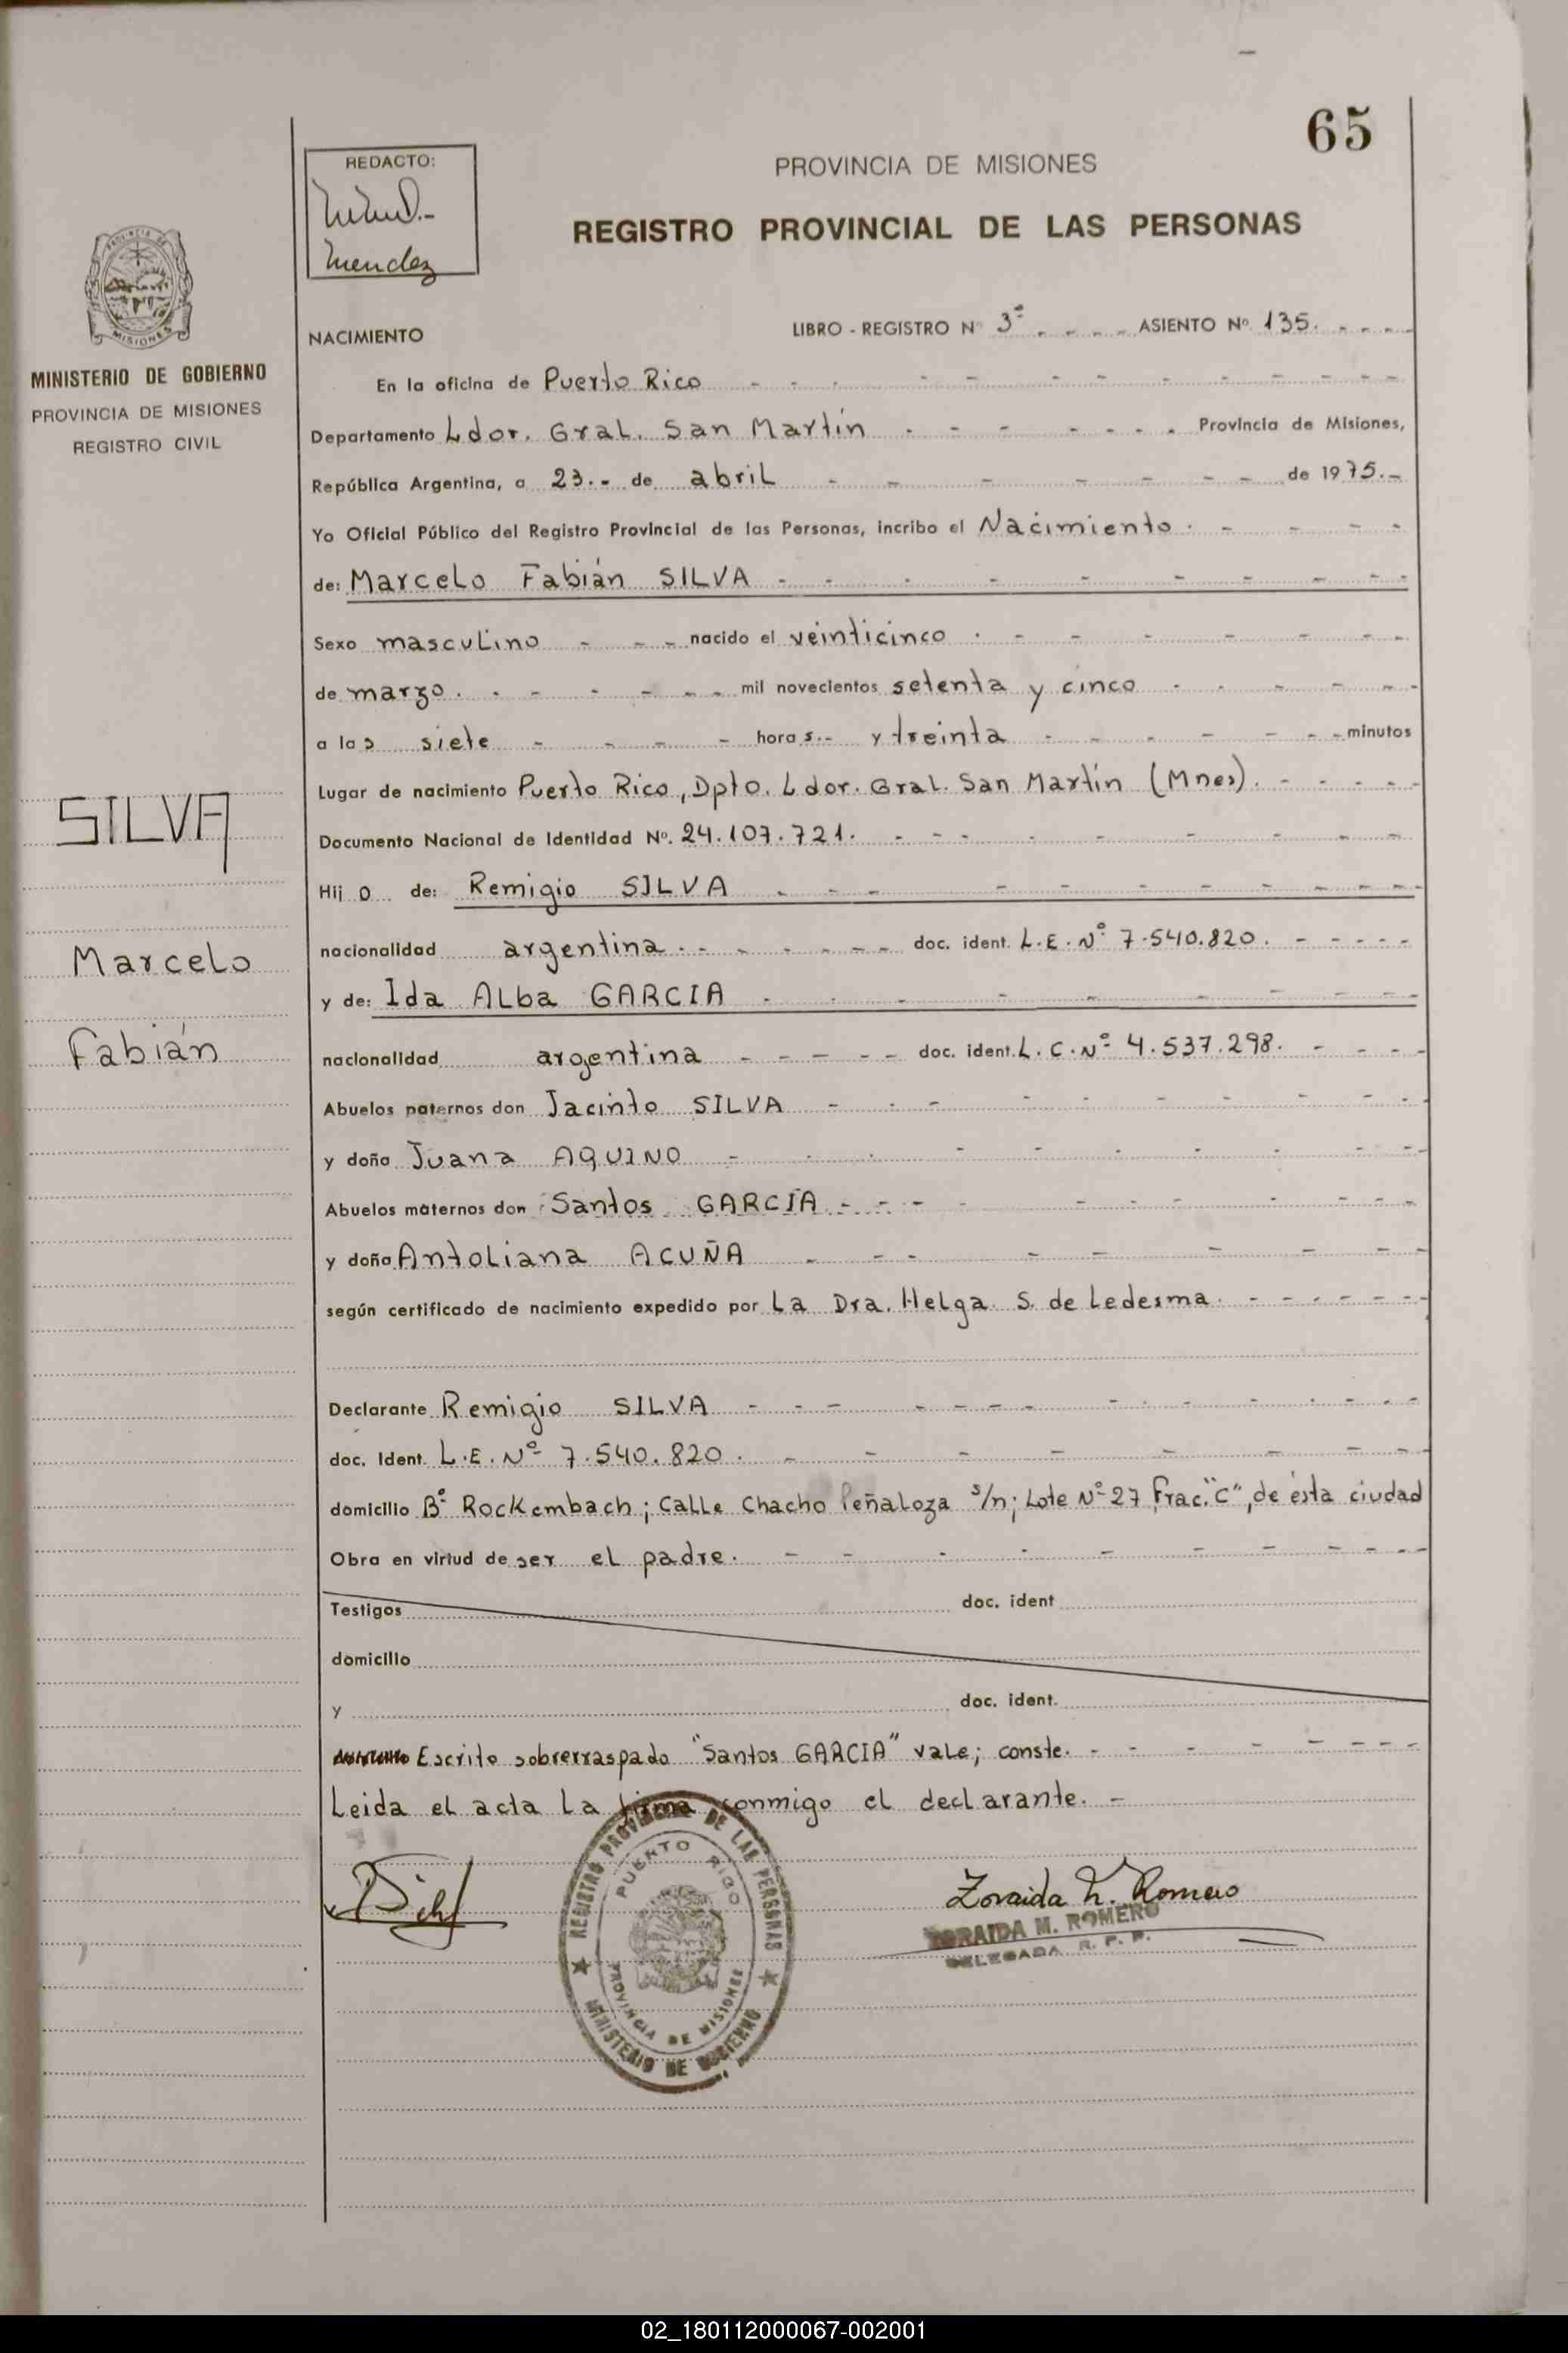 65
REDACTO:
Mendez
PROVINCIA DE MISIONES
REGISTRO PROVINCIAL DE LAS PERSONAS
MISIONES
MINISTERIO DE GOBIERNO
PROVINCIA DE MISIONES
REGISTRO CIVIL
NACIMIENTO LIBRO - REGISTRO Nº 3º - - - - ASIENTO Nº 135. - - - -
En la oficina de Puerto Rico
Departamento Ldor. Gral. San Martín Provincia de Misiones,
República Argentina, a 23.- de abril de 1975.-
Yo Oficial Público del Registro Provincial de las Personas, incribo el Nacimiento.
de: Marcelo Fabián SILVA
Sexo masculino nacido el veinticinco
de marzo. mil novecientos setenta y cinco
a las siete horas.- y treinta minutos
Lugar de nacimiento Puerto Rico, Dpto. Ldor. Gral. San Martín (Mnes).
Documento Nacional de Identidad Nº. 24.107.721.
Hijo de: Remigio SILVA
nacionalidad argentina. doc. ident. L.E. Nº 7.540.820.
y de: Ida Alba GARCIA
nacionalidad argentina doc. ident. L.C. Nº 4.537.298.
Abuelos paternos don Jacinto SILVA
y doña Juana AQUINO
Abuelos maternos don Santos GARCIA
y doña Antoliana ACUÑA
según certificado de nacimiento expedido por La Dra. Helga S. de Ledesma.
Declarante Remigio SILVA
doc. Ident. L.E. Nº 7.540.820.
domicilio Bº Rockembach; Calle Chacho Peñaloza s/n; Lote Nº 27, Frac. "C", de ésta ciudad
Obra en virtud de ser el padre.
Testigos doc. ident
domicilio
y doc. ident.
Escrito sobrerraspado "Santos GARCIA" vale; conste.
Leida el acta la firma conmigo el declarante. -
SILVA
Marcelo
Fabián
REGISTRO PROVINCIAL DE LAS PERSONAS
PUERTO RICO
PROVINCIA DE MISIONES
MINISTERIO DE GOBIERNO
Zoraida M. Romero
ZORAIDA M. ROMERO
DELEGADA R. P. P.
02_180112000067-002001